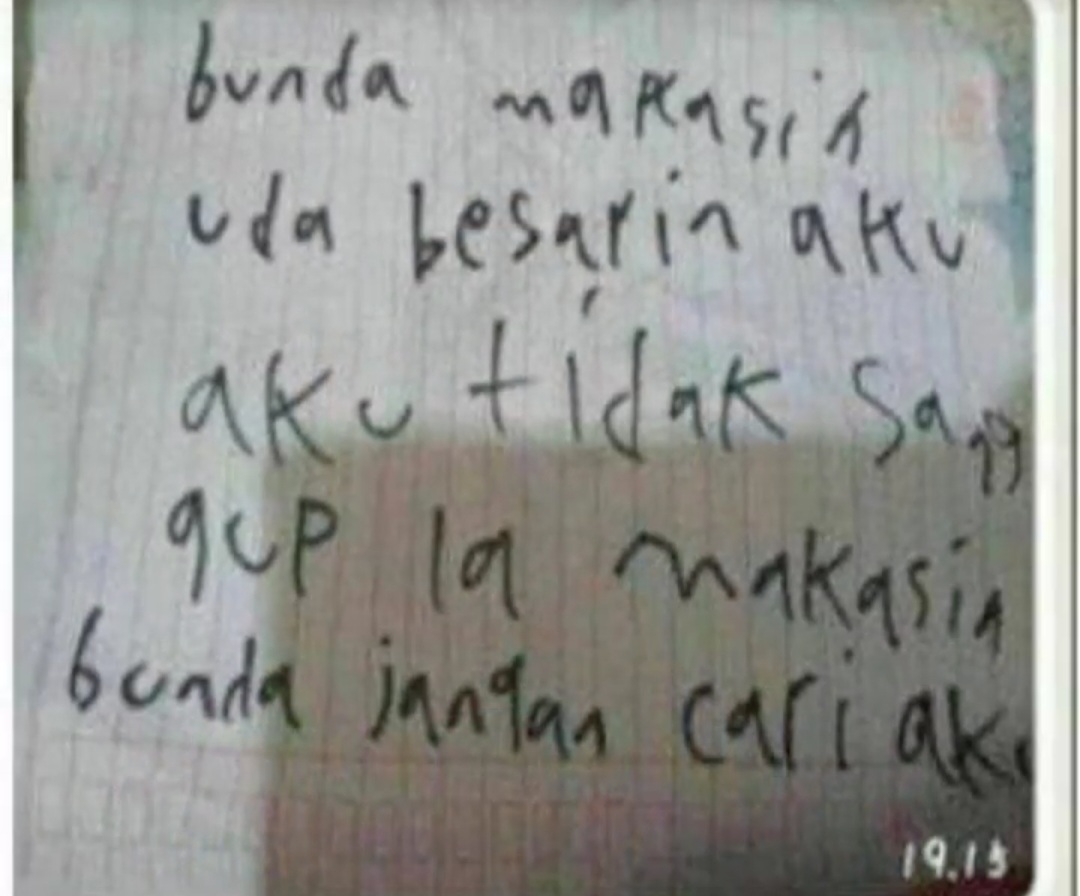 bunda makasih
uda besarin aku
aku tidak sang
gup la makasih
bunda jangan cari aku
19.15